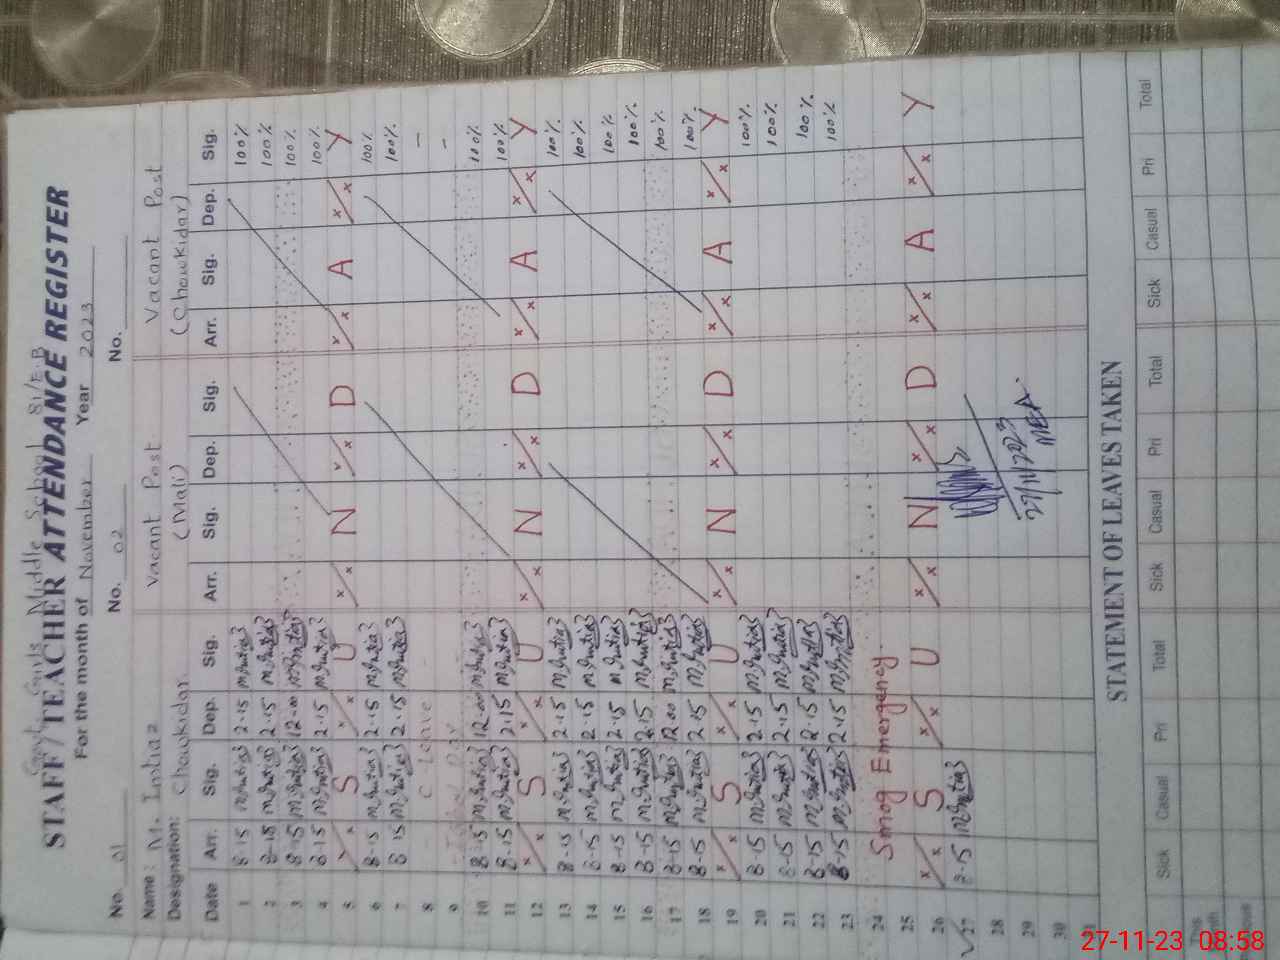 Govt. Girls Middle School 81/E.B
STAFF/TEACHER ATTENDANCE REGISTER
For the month of November Year 2023
No. 01 No. 02 No.
Name: M. Imtiaz Vacant Post Vacant Post
Designation: Chowkidar (Mali) (Chowkidar)
Date Arr. Sig. Dep. Sig. Arr. Sig. Dep. Sig. Arr. Sig. Dep. Sig.
1 8-15 M.Imtiaz 2-15 M.Imtiaz 100%
2 8-15 M.Imtiaz 2-15 M.Imtiaz 100%
3 8-15 M.Imtiaz 12-00 M.Imtiaz 100%
4 8-15 M.Imtiaz 2-15 M.Imtiaz 100%
5 x/x S x/x U x/x N x/x D x/x A x/x Y
6 8-15 M.Imtiaz 2-15 M.Imtiaz 100%
7 8-15 M.Imtiaz 2-15 M.Imtiaz 100%
8 - C-Leave - -
9 -
10 8-15 M.Imtiaz 12-00 M.Imtiaz 100%
11 8-15 M.Imtiaz 2-15 M.Imtiaz 100%
12 x/x S x/x U x/x N x/x D x/x A x/x Y
13 8-15 M.Imtiaz 2-15 M.Imtiaz 100%
14 8-15 M.Imtiaz 2-15 M.Imtiaz 100%
15 8-15 M.Imtiaz 2-15 M.Imtiaz 100%
16 8-15 M.Imtiaz 2-15 M.Imtiaz 100%
17 8-15 M.Imtiaz 12-00 M.Imtiaz 100%
18 8-15 M.Imtiaz 2-15 M.Imtiaz 100%
19 x/x S x/x U x/x N x/x D x/x A x/x Y
20 8-15 M.Imtiaz 2-15 M.Imtiaz 100%
21 8-15 M.Imtiaz 2-15 M.Imtiaz 100%
22 8-15 M.Imtiaz 2-15 M.Imtiaz 100%
23 8-15 M.Imtiaz 2-15 M.Imtiaz 100%
24
25 Smog Emergency
26 x/x S x/x U x/x N x/x D x/x A x/x Y
27 8-15 M.Imtiaz
28 27/11/2023
29 MEA.
30
31
STATEMENT OF LEAVES TAKEN
Sick Casual Pri Total Sick Casual Pri Total Sick Casual Pri Total
This
27-11-23 08:58